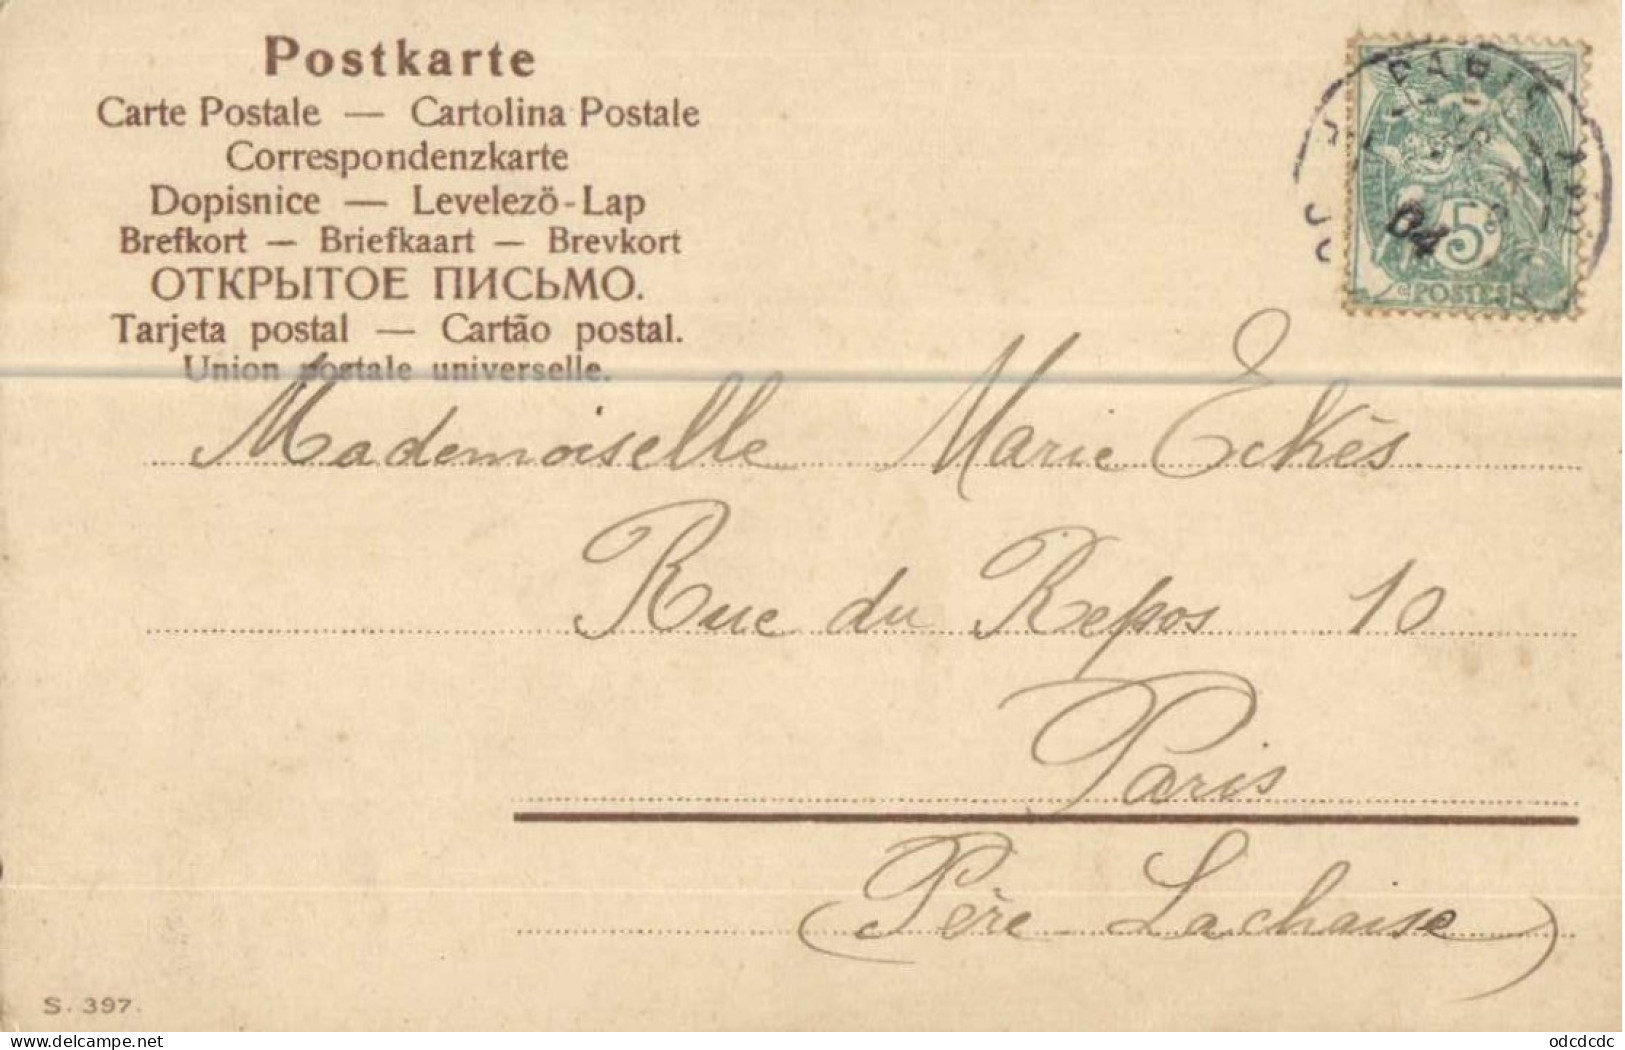 Postkarte
Carte Postale — Cartolina Postale
Correspondenzkarte
Dopisnice — Levelezö-Lap
Brefkort — Briefkaart — Brevkort
ОТКРЫТОЕ ПИСЬМО.
Tarjeta postal — Cartão postal.
Union postale universelle.
PARIS
04
5
POSTES
Mademoiselle Marie Eckès
Rue du Repos 10
Paris
(Père Lachaise)
S. 397.
delcampe.net
odcdcdc